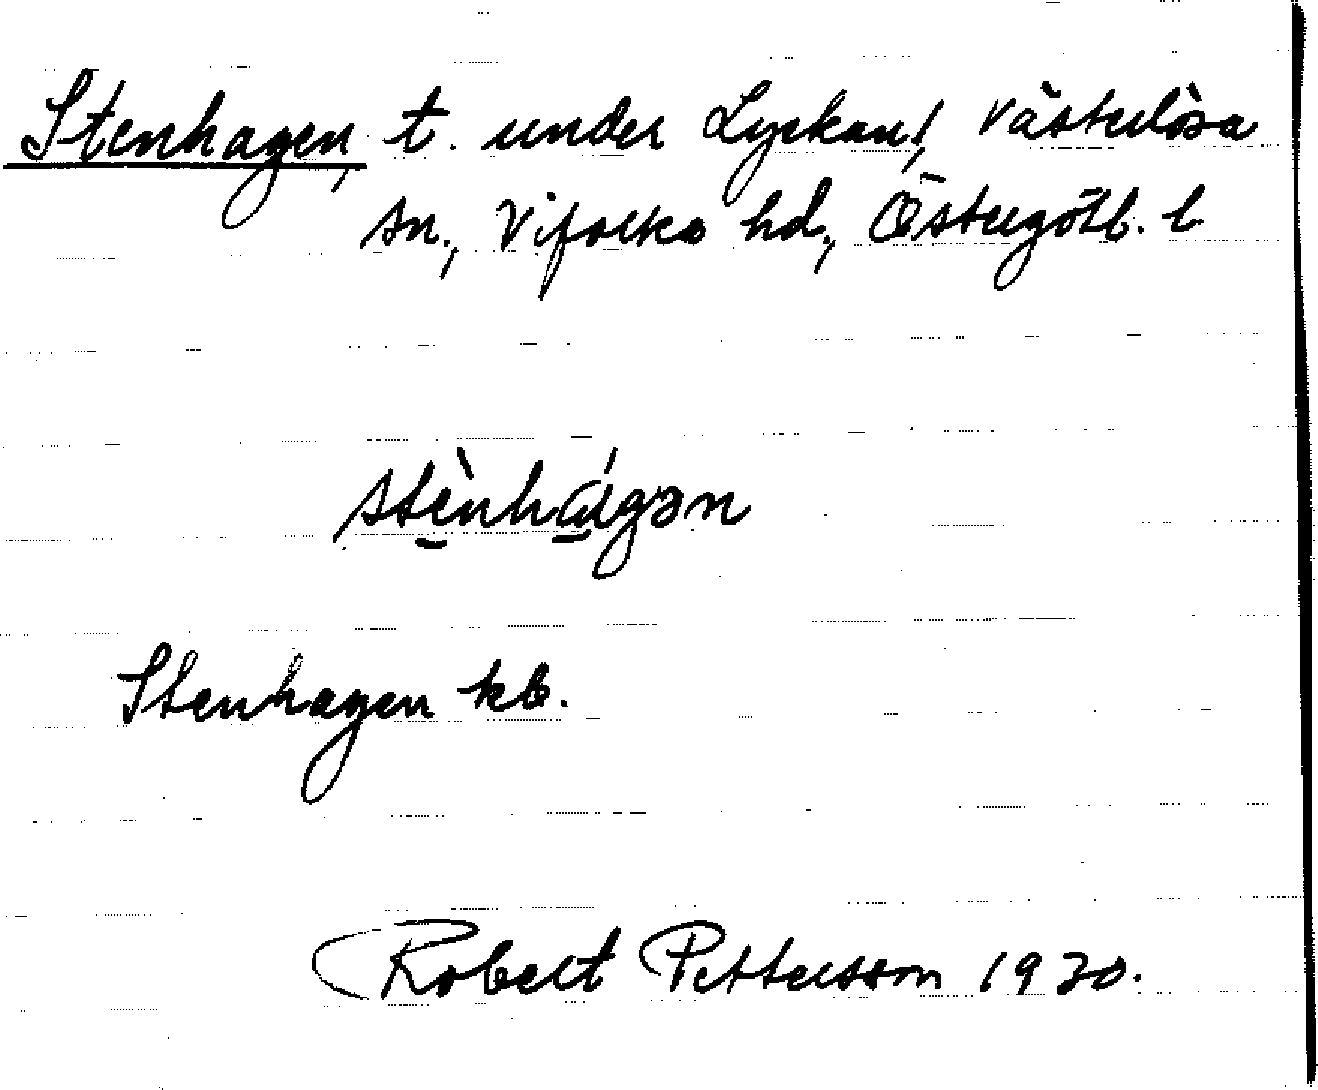 Stenhagen, t. under Lyckan!, Västerlösa
sn., Vifolka hd, Östergötl. l
stènhágən
Stenhagen kb.
Robert Pettersson 1930.